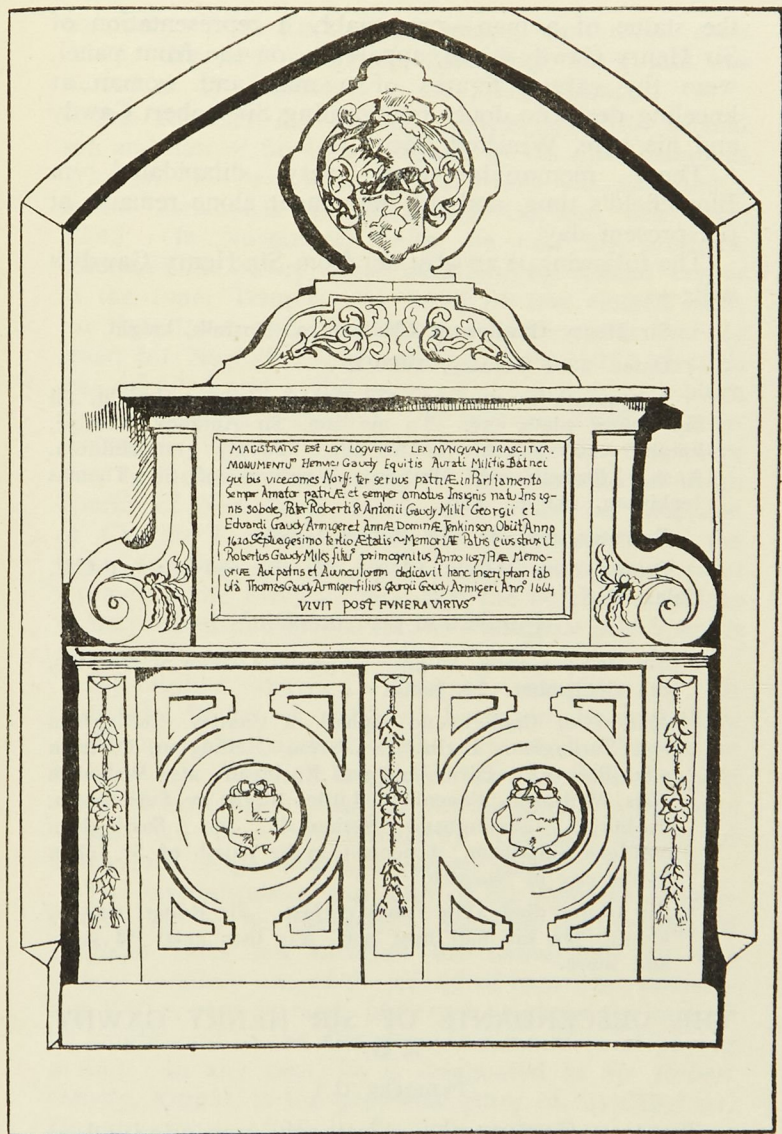 MAGISTRATUS EST LEX LOQVENS. LEX NVNQVAM IRASCITVR.
MONUMENTUm Henrici Gaudy Equitis Aurati Militis Batnei
qui bis vicecomes Norff: ter servus patriÆ in Parliamento
Semper Amator patriÆ et semper amatus Insignis natu Insig-
nis sobole, Pater Roberti & Antonii Gaudy Milit Georgii et
Edvardi Gaudy Armiger et AnnÆ DominÆ Jenkinson. Obiit Anno
1620 Septuagesimo tertio Ætatis ~ MemoriÆ Patris eius struxit
Robertus Gaudy Miles filius primogenitus Anno 1637 PiÆ Memo-
oriæ Avi patris et Avunculorum dedicavit hanc inscriptam tab
ulã Thomas Gaudy Armiger filius Georgii Gaudy Armigeri Anno 1664
VIVIT POST FVNERA VIRTVS